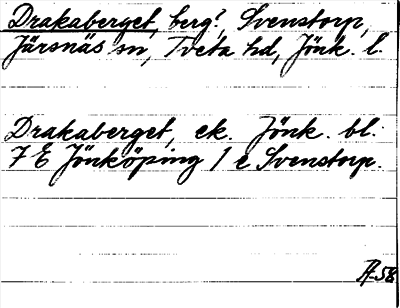 Drakaberget, berg?, Svenstorp,
Järsnäs sn, Tveta hd, Jönk. l.
Drakaberget, ek. Jönk. bl.
7 E Jönköping 1 e Svenstorp.
A-58